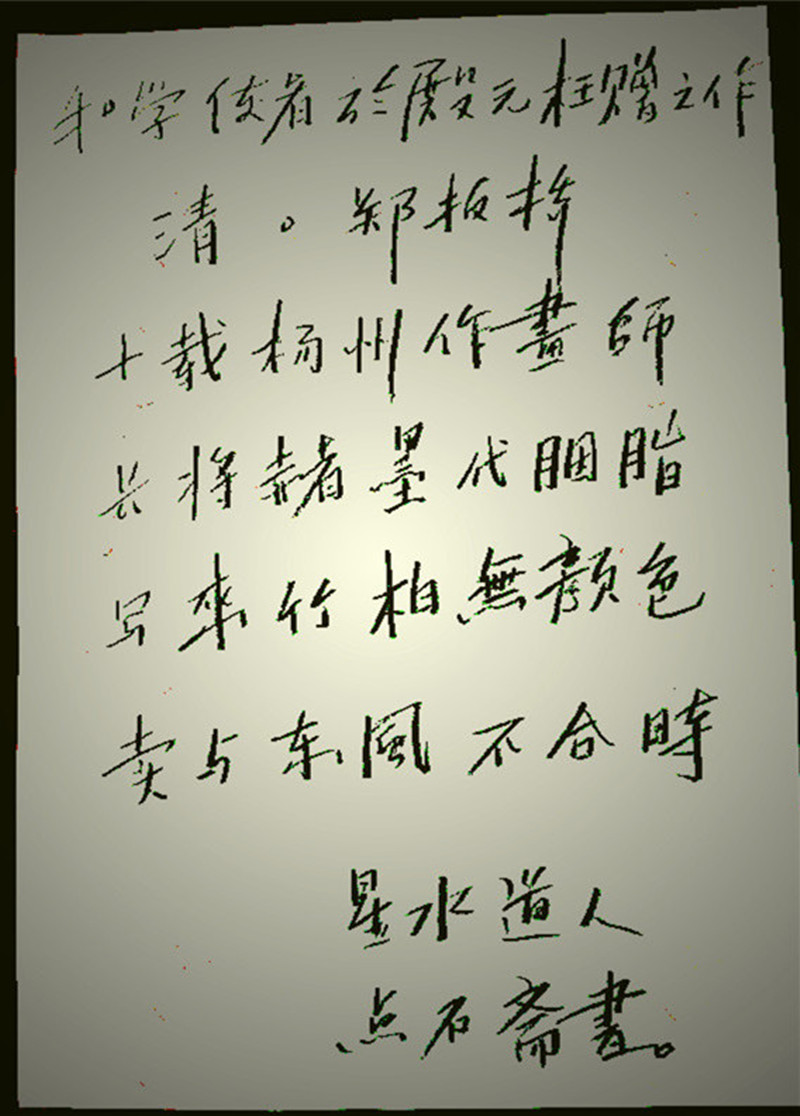 和学使者於殿元枉赠之作
清。郑板桥
十载杨州作畫师
长将赭墨代胭脂
写來竹柏無颜色
卖与东風不合時
星水道人
点石斋書。